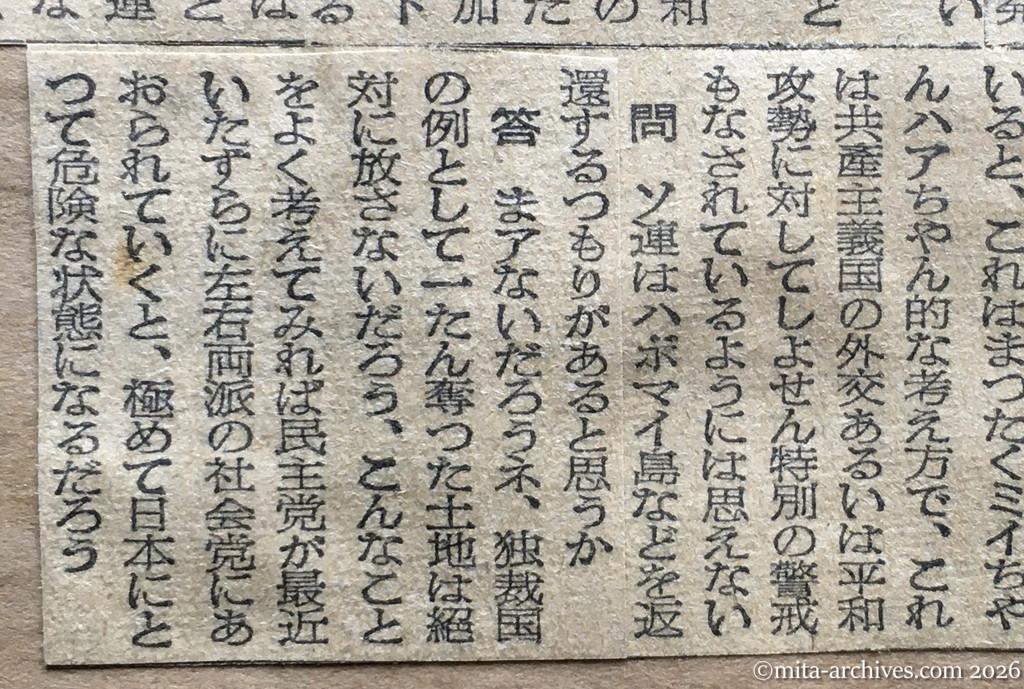 いると、これはまつたくミイちや
んハアちやん的な考え方で、これ
は共産主義国の外交あるいは平和
攻勢に対してしよせん特別の警戒
もなされているようには思えない
問　ソ連はハボマイ島などを返
還するつもりがあると思うか
答　まアないだろうネ、独裁国
の例として一たん奪つた土地は絶
対に放さないだろう、こんなこと
をよく考えてみれば民主党が最近
いたずらに左右両派の社会党にあ
おられていくと、極めて日本にと
つて危険な状態になるだろう
©mita-archives.com 2026